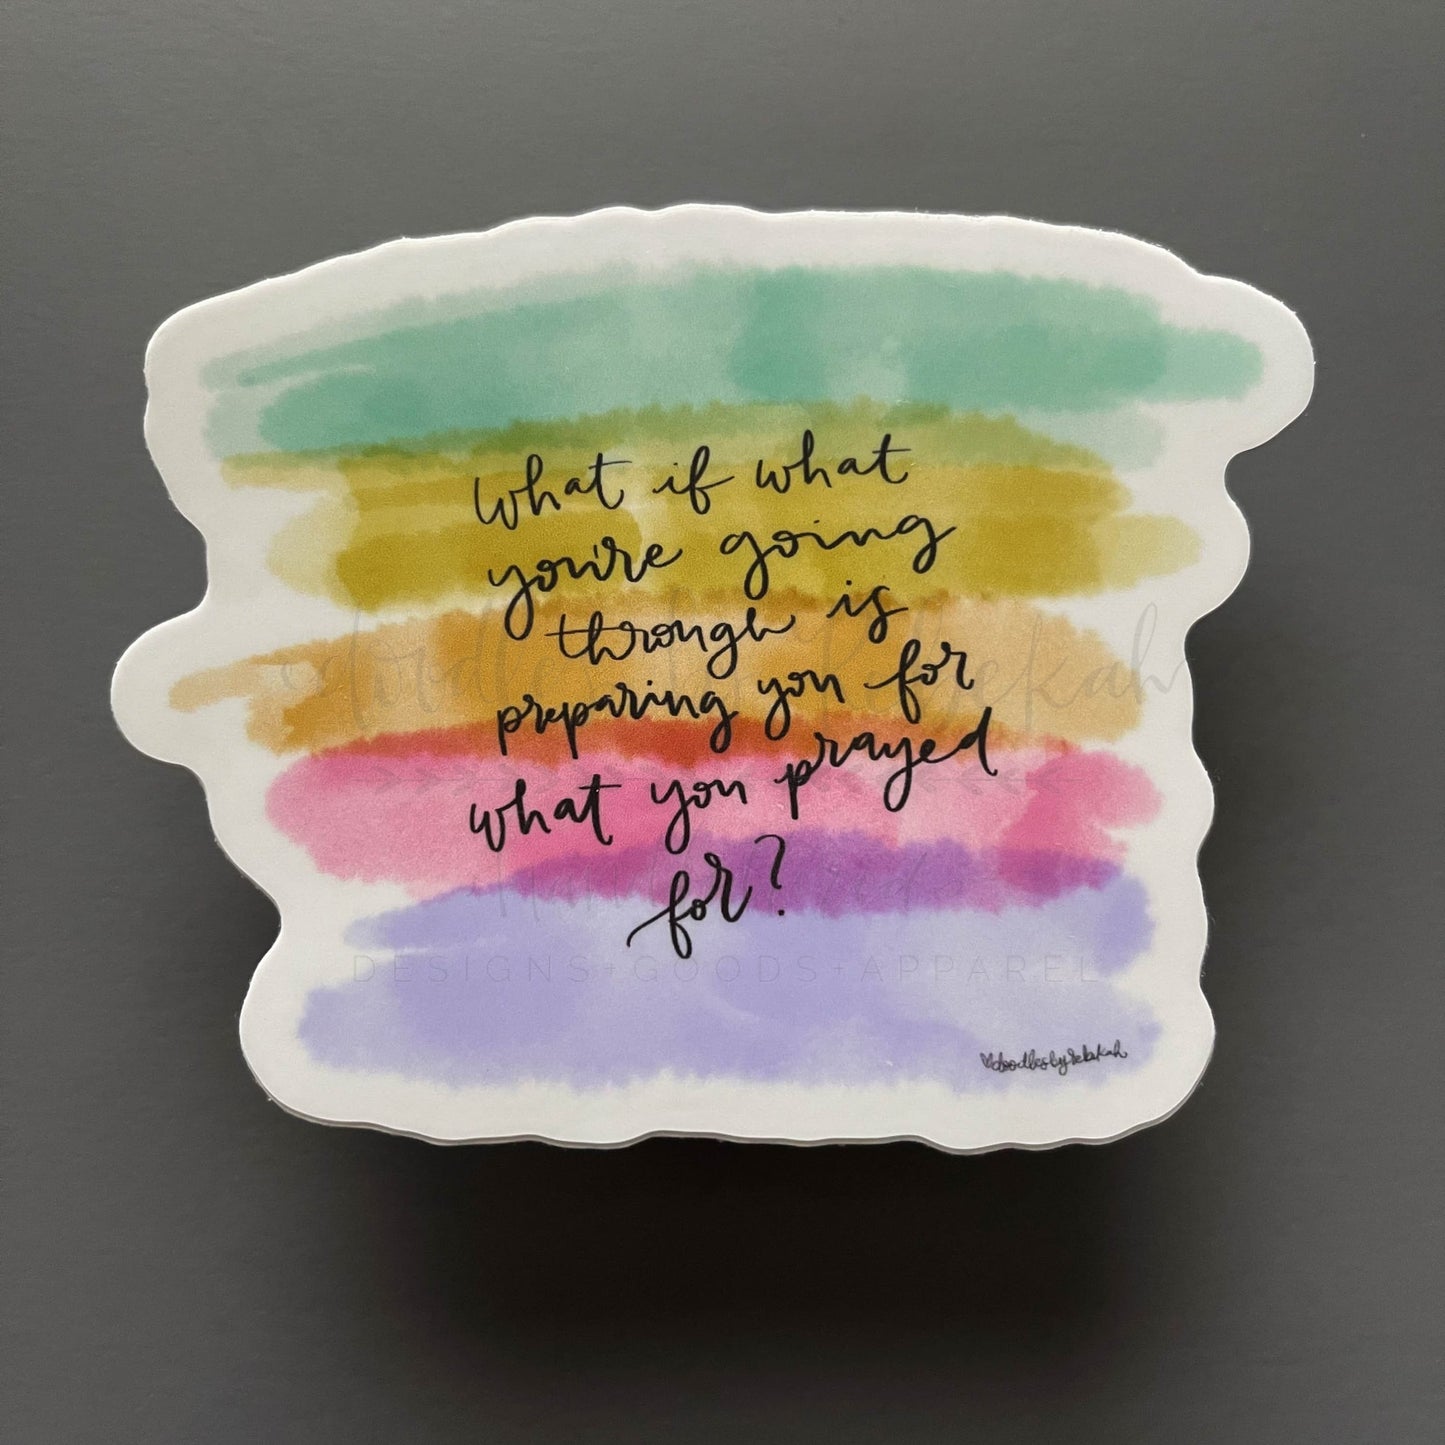 what if what
you're going
through is
preparing you for
what you prayed
for?
doodles by Rebekah
DESIGNS+GOODS+APPAREL
♡doodlesbyrebekah